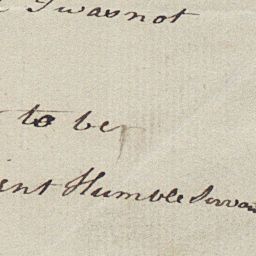 I was not
to be
Humble Servan